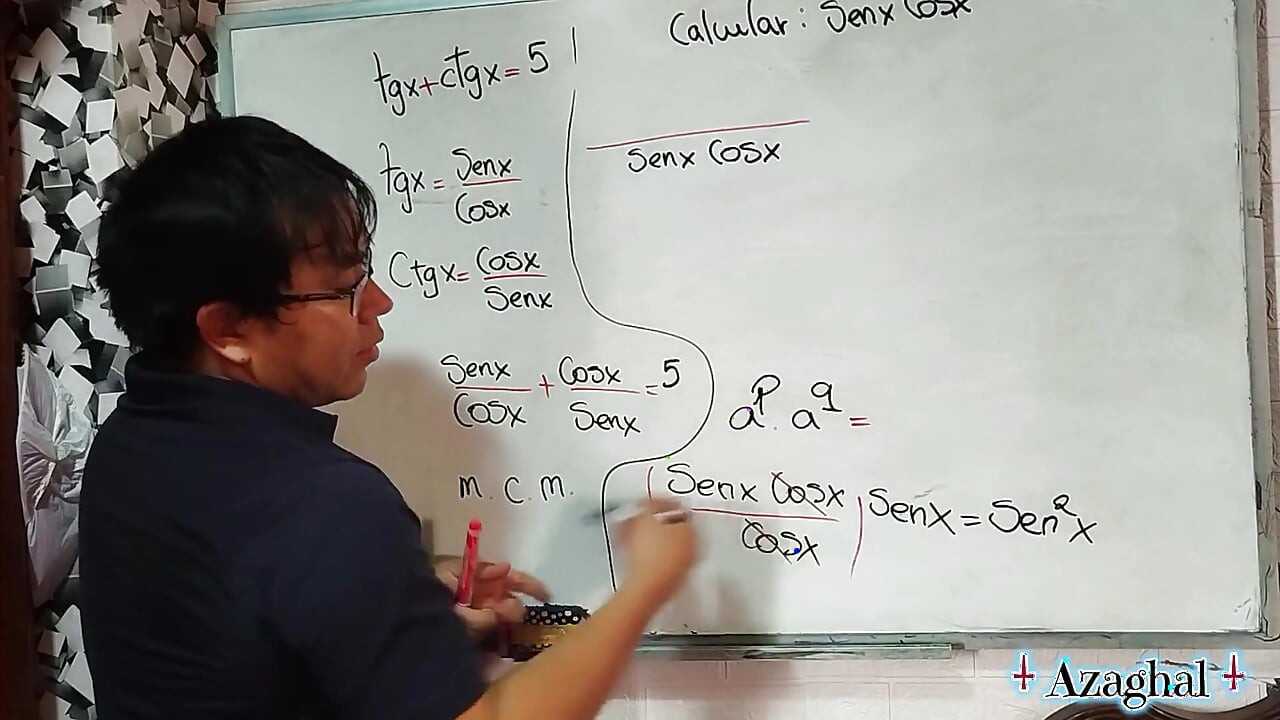 Calcular: Senx Cosx
tgx+ctgx=5
tgx= Senx
Cosx
Ctgx= Cosx
Senx
Senx + Cosx = 5
Cosx Senx
m.c.m.
Senx Cosx
a^p . a^q =
Senx Cosx | Senx = Sen²x
Cosx
Azaghal